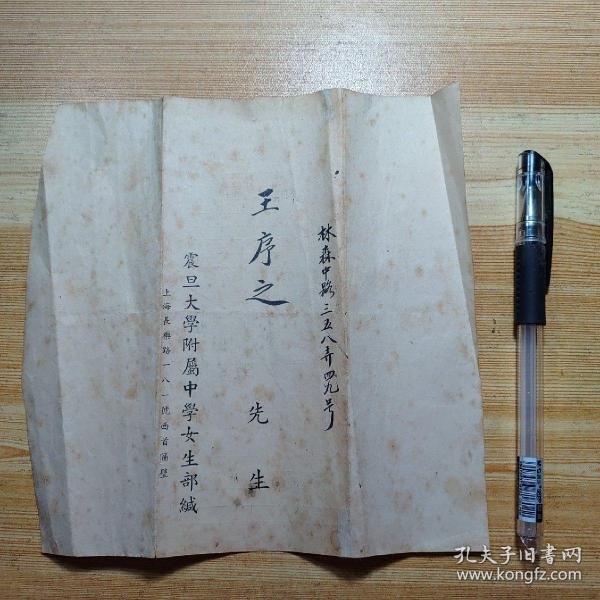 林森中路三五八弄四九号
王序之 先生
震旦大學附屬中學女生部緘
上海長樂路一八一號西首隔壁
孔夫子旧书网
www.kongfz.com